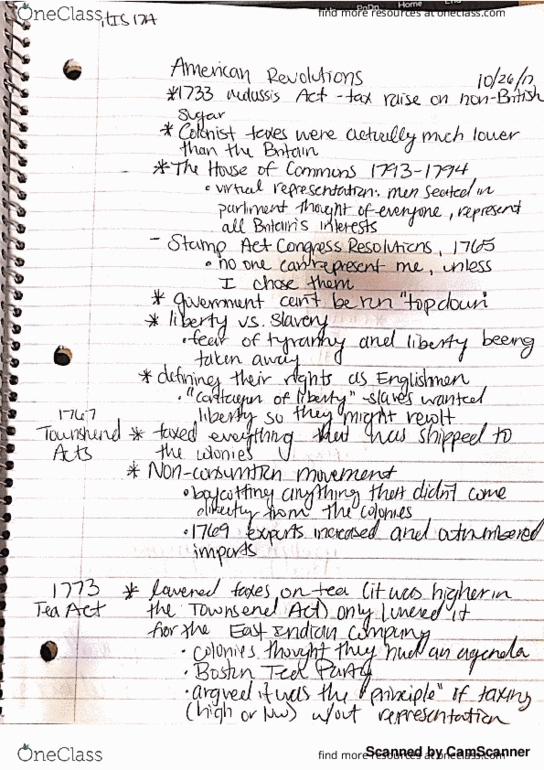 OneClass
HIS 17A
find more resources at oneclass.com
American Revolutions 10/26/17
*1733 Molassis Act - tax raise on non-British
sugar
* Colonist taxes were actually much lower
than the Britain
*The House of Commons 1793-1794
• virtual representation: men seated in
parliment thought of everyone, represent
all Britain's interests
- Stamp Act Congress Resolutions, 1765
• no one can represent me, unless
I chose them
* government can't be run "topdown"
* liberty vs. slavery
• fear of tyranny and liberty beeing
taken away
* defining their rights as Englishmen
• "contagion of liberty" - slaves wanted
liberty so they might revolt
1767
Townshend Acts
* taxed everything that was shipped to
the colonies
* Non-consumtion movement
• boycotting anything that didn't come
directly from the colonies
• 1769 exports increased and outnumbered
imports
1773
Tea Act
* lowered taxes on tea (it was higher in
the Townsend Act) only lowered it
for the East Indian Company
• colonies thought they had an agenda
• Boston Tea Party
• argued it was the "principle" if taxing
(high or low) w/out representation
OneClass
find more resources at oneclass.com
Scanned by CamScanner